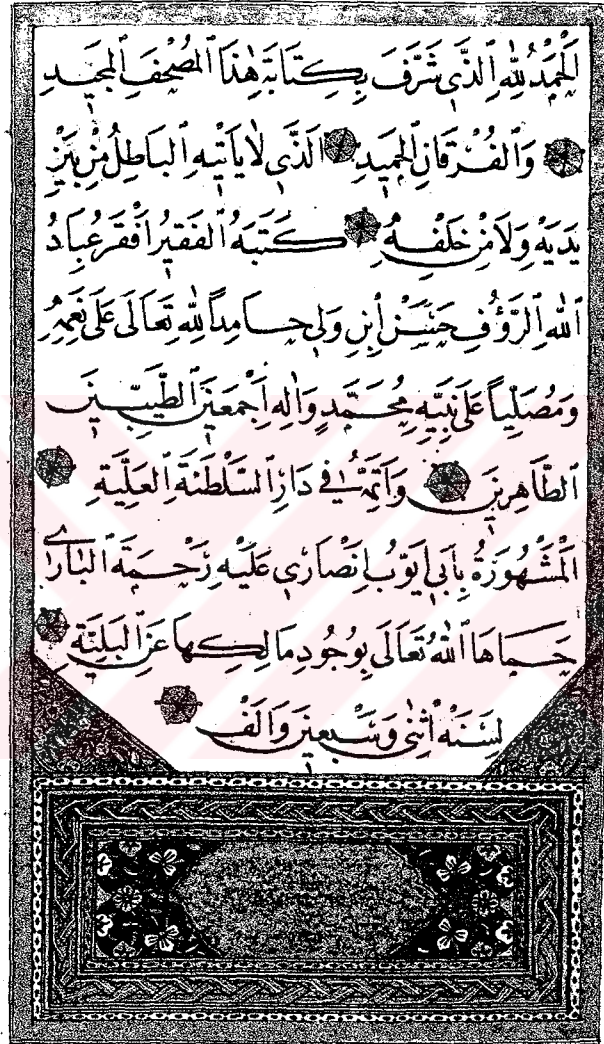 اَلْحَمْدُ لِلّٰهِ ٱلَّذِي شَرَّفَ بِكِتَابَةِ هٰذَا ٱلْمُصْحَفِ ٱلْمَجِيدِ
وَٱلْفُرْقَانِ ٱلْحَمِيدِ اَلَّذِي لَا يَاْتِيهِ ٱلْبَاطِلُ مِنْ بَيْنِ
يَدَيْهِ وَلَا مِنْ خَلْفِهِ كَتَبَهُ ٱلْفَقِيرُ اَفْقَرُ عِبَادُ
ٱللّٰهِ ٱلرَّؤُفِ حَسَنْ اِبْنِ وَلِي حَامِداً لِلّٰهِ تَعَالَى عَلَى نِعَمِهِ
وَمُصَلِّياً عَلَى نَبِيِّهِ مُحَمَّدٍ وَاٰلِهِ اَجْمَعِينَ ٱلطَّيِّبِينَ
ٱلطَّاهِرِينَ وَاَتَمَّهُ فِي دَارِ ٱلسَّلْطَنَةِ ٱلْعَلِيَّةِ
اَلْمَشْهُورَةُ بِاَبِي اَيُّوبُ اِنْصَارِي عَلَيْهِ رَحْمَةُ ٱلْبَارِي
حَمَاهَا ٱللّٰهُ تَعَالَى بِوُجُودِ مَالِكِهَا عَنِ ٱلْبَلِيَّةِ
لِسَنَةِ اثْنَى وَسَبْعِينَ وَاَلْفْ